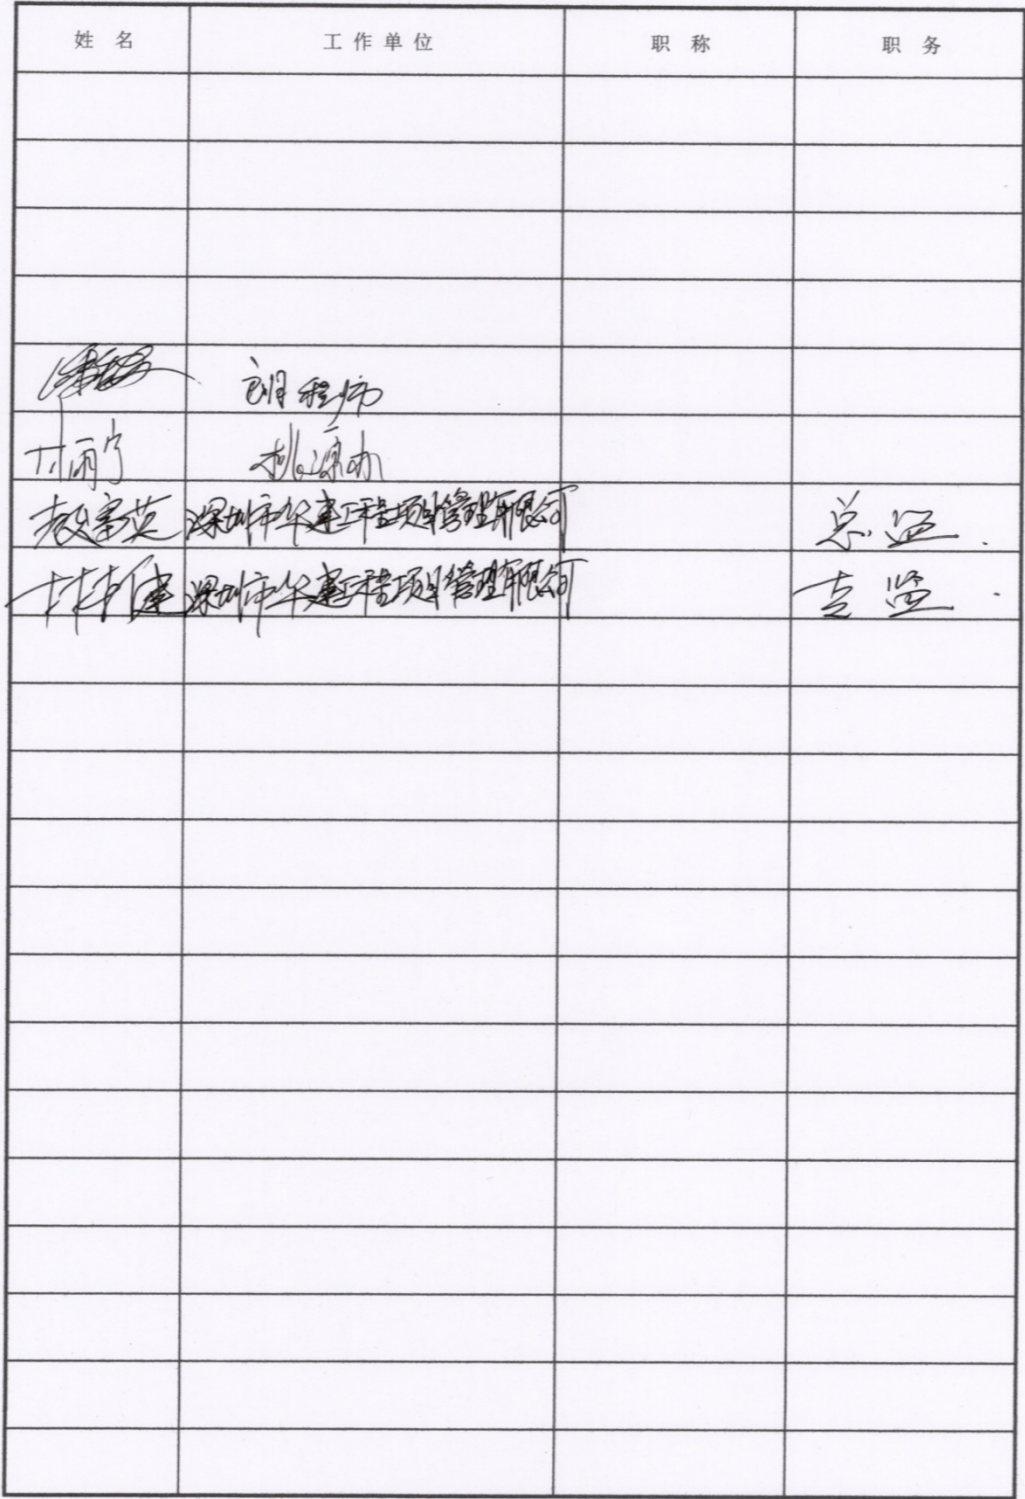 姓 名 工作单位 职 称 职 务
桃源办
深圳市华建工程项目管理有限公司 总监
林健 深圳市华建工程项目管理有限公司 专监